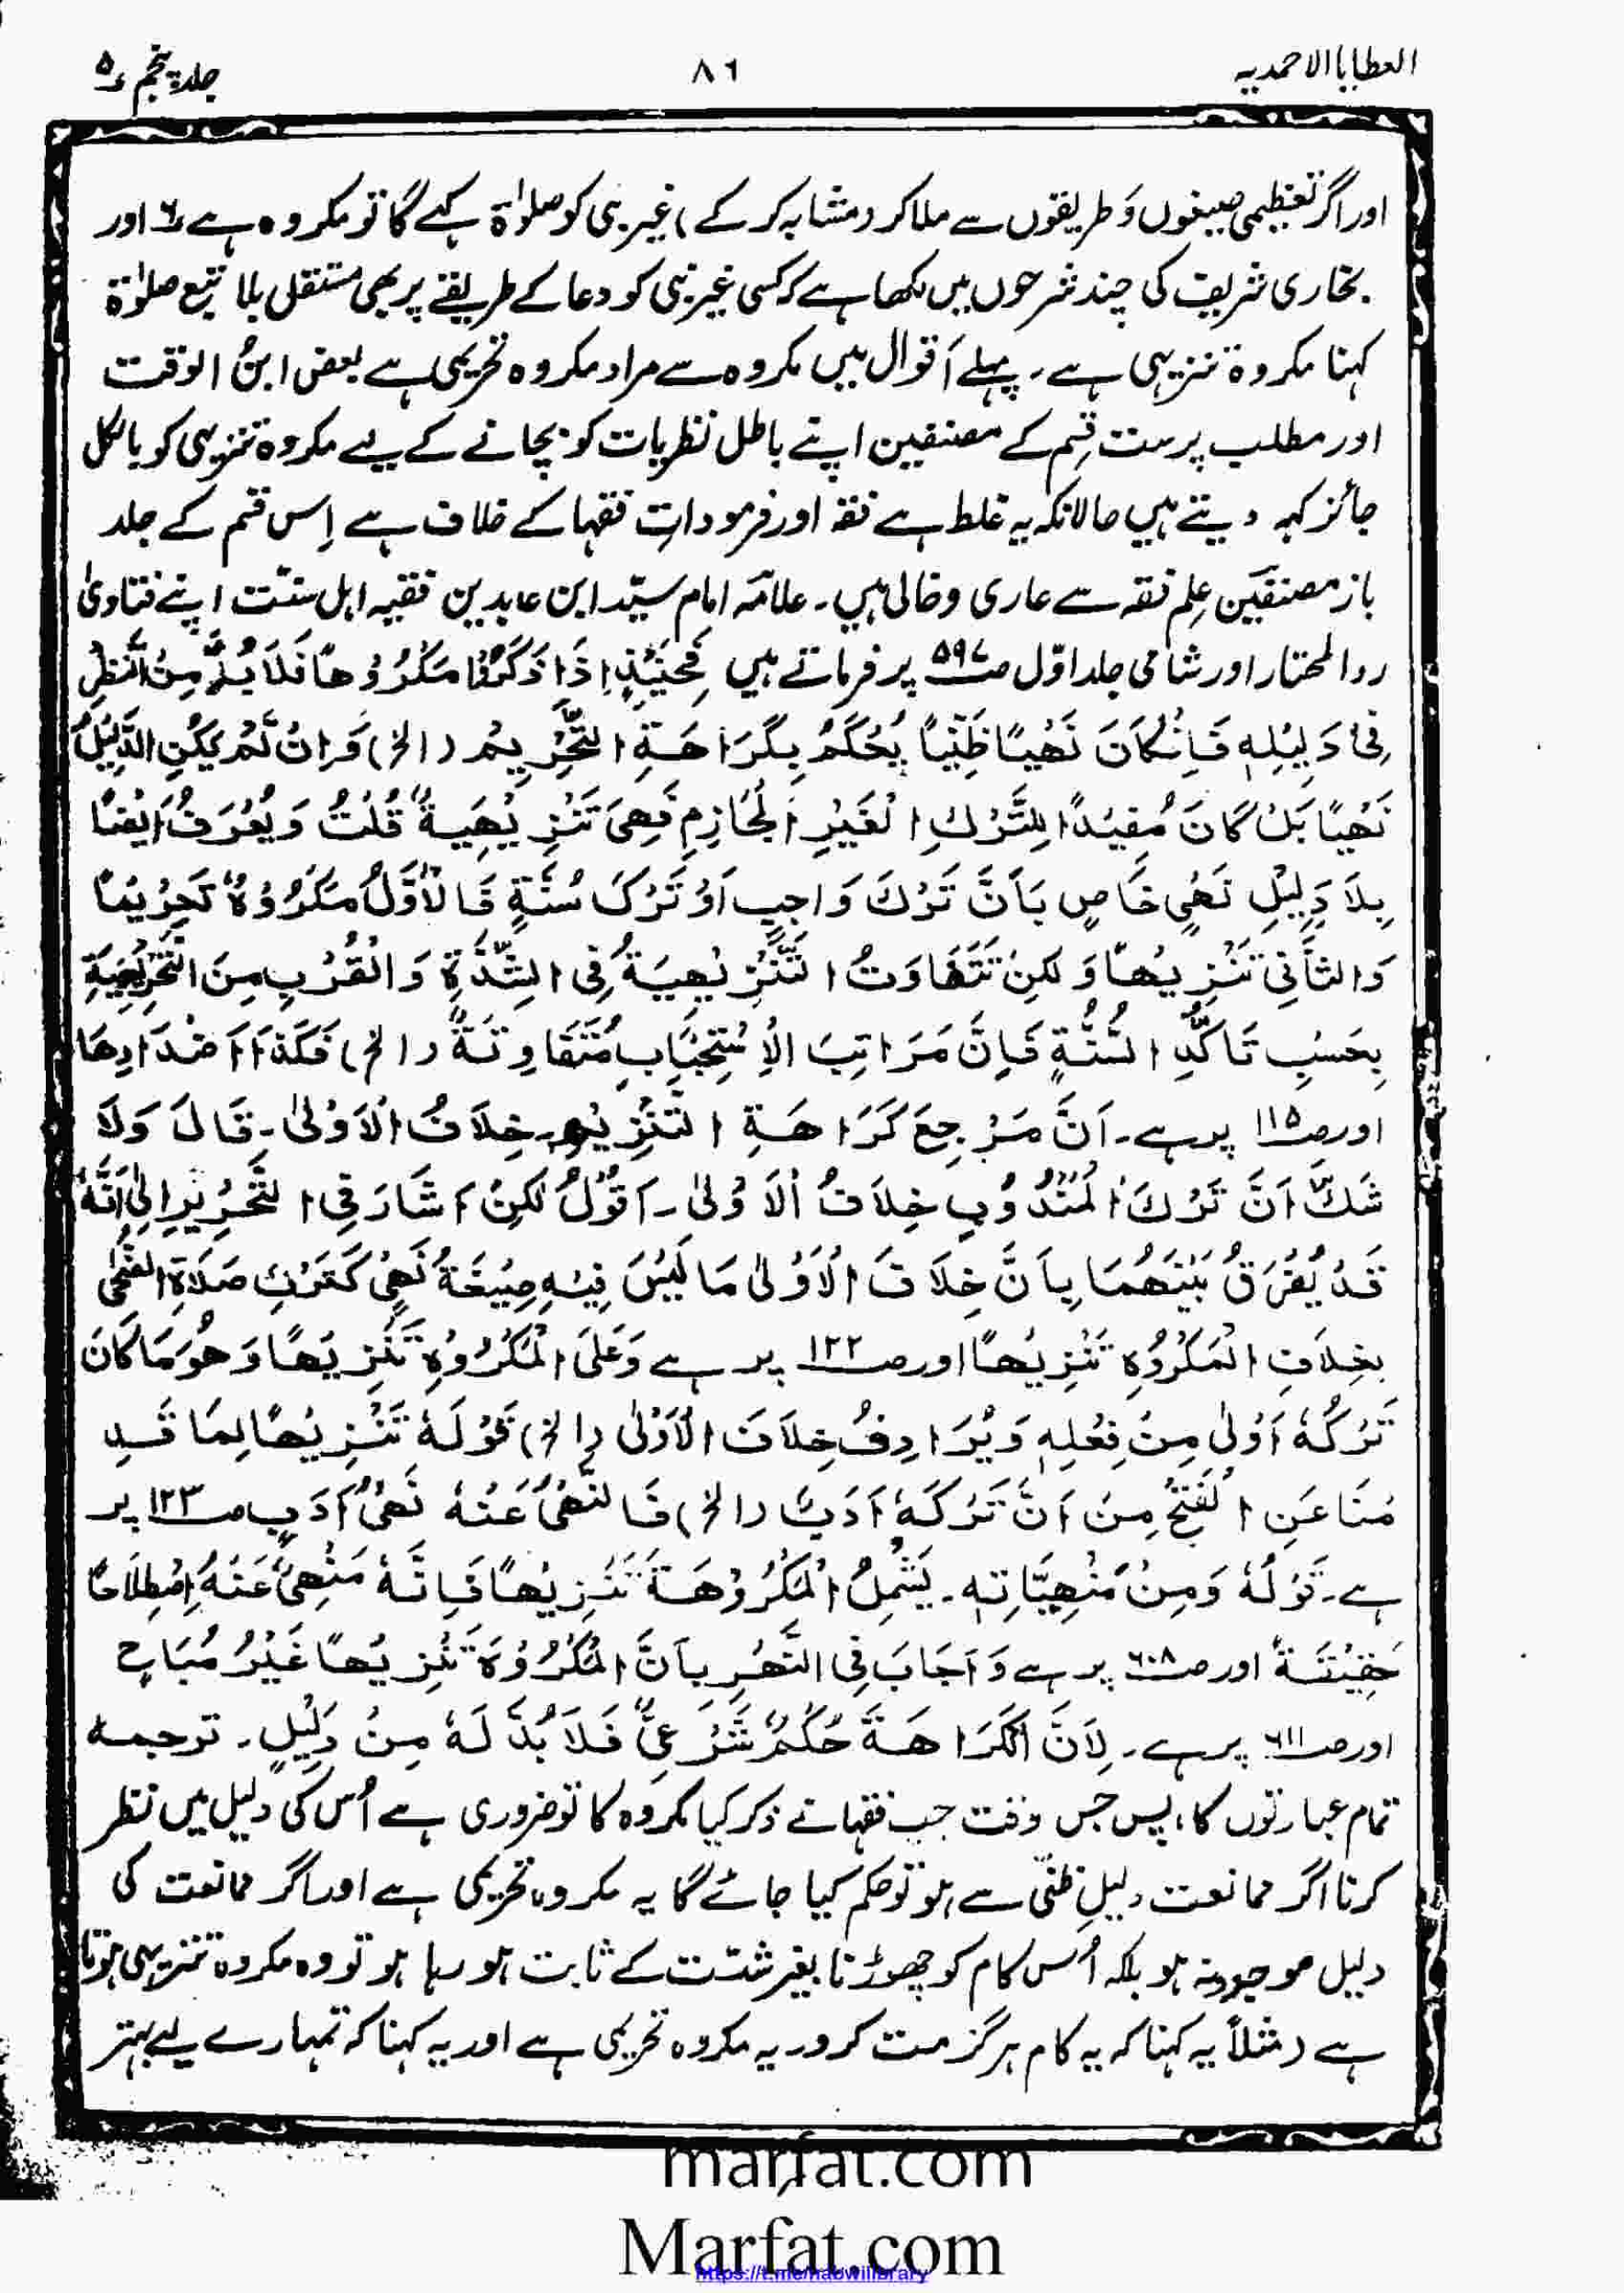 العطایا الاحمدیہ
۸۶
جلد پنجم ۵
اور اگر تعظیمی صیغوں وَ طریقوں سے ملا کر (مشابہ کر کے) غیر نبی کو صلوٰۃ کہے گا تو مکروہ ہے ۶؎ اور
بخاری شریف کی چند شرحوں میں لکھا ہے کہ کسی غیر نبی کو دعا کے طریقے پر بھی مستقل بلا تبع صلوٰۃ
کہنا مکروۃ تنزیہی ہے۔ پہلے اَقوال میں مکروہ سے مراد مکروہ تحریمی ہے بعض ابنُ الوقت
اور مطلب پرست قِسم کے مصنفین اپنے باطل نظریات کو بچانے کے لیے مکروۃ تنزیہی کو بالکل
جائز کہہ دیتے ہیں حالانکہ یہ غلط ہے فقہ اور فرموداتِ فقہا کے خلاف ہے اِس قسم کے جلد
باز مصنفَین عِلمِ فقہ سے عاری و خالی ہیں۔ علامّہ امام سیّد ابن عابدین فقیہِ اہل سنّت اپنے فتاویٰ
ردالمحتار اور شامی جلد اوّل صـ۵۹۷ پر فرماتے ہیں فَحِیْنَئِذٍ اِذَا ذَکَرُوْا مَکْرُوْھًا فَلَا بُدَّ مِنَ النَّظْرِ
فِیْ دَلِیْلِہٖ فَاِنْ کَانَ نَھْیًا ظَنِّیًا یُحْکَمُ بِکَرَاھَۃِ التَّحْرِیْمِ (الخ) وَ اِنْ لَّمْ یَکُنِ الدَّلِیْلُ
نَھْیًا بَلْ کَانَ مُفِیْدًا لِلتَّرْکِ الْغَیْرِ الْجَازِمِ فَھِیَ تَنْزِیْھِیَۃٌ قُلْتُ وَیُعْرَفُ اَیْضًا
بِلَا دَلِیْلِ نَھْیٍ خَاصٍ بِاَنَّ تَرْکَ وَاجِبٍ اَوْ تَرْکَ سُنَّۃٍ فَالْاَوَّلُ مَکْرُوْہٌ تَحْرِیْمًا
وَالثَّانِی تَنْزِیْھًا وَ لٰکِنْ تَتَفَاوَتُ التَّنْزِیْھِیَۃُ فِی الشِّدَّۃِ وَالْقُرْبِ مِنَ التَّحْرِیْمِیَۃِ
بِحَسْبِ تَاَکُّدِ السُّنَّۃِ فَاِنَّ مَرَاتِبَ الْاِسْتِحْبَابِ مُتَفَاوِتَۃٌ (الخ) فَکَذَا اَضْدَادِھَا
اور صـ۱۱۵ پر ہے۔ اَنَّ مَرْجِعَ کَرَاھَۃِ التَّنْزِیْہِ خِلَافُ الْاَوْلٰی۔ قَالَ وَلَا
شَکَّ اَنَّ تَرْکَ الْمَنْدُوْبِ خِلَافُ الْاَوْلٰی۔ اَقُوْلُ لٰکِنْ اَشَارَ فِی التَّحْرِیْرِ اِلٰی اَنَّہٗ
قَدْ یُفْرَقُ بَیْنَھُمَا بِاَنَّ خِلَافَ الْاَوْلٰی مَا لَیْسَ فِیْہِ صِیْغَۃُ نَھْیٍ کَتَرْکِ صَلَاۃِ الضُّحٰی
بِخِلَافِ الْمَکْرُوْہِ تَنْزِیْھًا اور صـ۱۲۲ پر ہے وَ عَلَی الْمَکْرُوْہِ تَنْزِیْھًا وَ ھُوَ مَا کَانَ
تَرْکُہٗ اَوْلٰی مِنْ فِعْلِہٖ وَ یُرَادِفُ خِلَافَ الْاَوْلٰی (الخ) قَوْلُہٗ تَنْزِیْھًا لِمَا قَدِ
مْنَا عَنِ الْفَتْحِ مِنْ اَنَّ تَرْکَہٗ اَدَبٌ (الخ) فَالنَّھْیُ عَنْہُ نَھْیُ اَدَبٍ صـ۱۲۳ پر
ہے۔ قَوْلُہٗ وَ مِنْ مَنْھِیَّاتِہٖ۔ یَشْمِلُ الْمَکْرُوْھَۃَ تَنْزِیْھًا فَاِنَّہٗ مَنْھِیٌّ عَنْہُ اِصْطِلَاحًا
حَقِیْقَۃً اور صـ۶۰۸ پر ہے وَ اَجَابَ فِی النَّھْرِ بِاَنَّ الْمَکْرُوْہَ تَنْزِیْھًا غَیْرُ مُبَاحٍ
اور صـ۶۱۱ پر ہے۔ لِاَنَّ الْکَرَاھَۃَ حُکْمٌ شَرْعِیٌّ فَلَا بُدَّ لَہٗ مِنْ دَلِیْلٍ۔ ترجمہ
تمام عبارتوں کا، پس جس وقت جب فقہا نے ذکر کیا مکروہ کا تو ضروری ہے اُس کی دلیل میں نظر
کرنا اگر ممانعت دلیلِ ظنّی سے ہو تو حکم کیا جائے گا یہ مکروہ تحریمی ہے اور اگر ممانعت کی
دلیل موجود نہ ہو بلکہ اُس کام کو چھوڑنا بغیر شدّت کے ثابت ہو رہا ہو تو وہ مکروۃ تنزیہی ہوتا
ہے (مثلاً یہ کہنا کہ یہ کام ہرگز مت کرو یہ مکروہ تحریمی ہے اور یہ کہنا کہ تمہارے لیے بہتر
marfat.com
Marfat.com
https://t.me/nabwilibrary